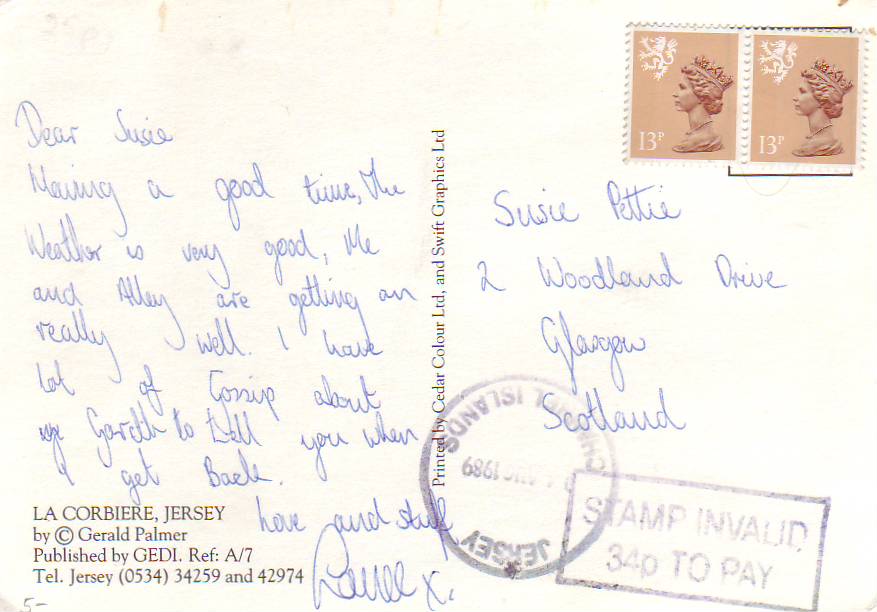 Dear Susie
Having a good time, The
Weather is very good, Me
and Alley are getting on
really well. I have
lot of Gossip about
Gareth to tell you when
I get Back.
Love and stuff
x.
LA CORBIERE, JERSEY
by © Gerald Palmer
Published by GEDI. Ref: A/7
Tel. Jersey (0534) 34259 and 42974
5-
Printed by Cedar Colour Ltd, and Swift Graphics Ltd
13P
13P
Susie Pettie
2 Woodland Drive
Glasgow
Scotland
JERSEY
CHANNEL ISLANDS
AUG 1989
STAMP INVALID
34p TO PAY